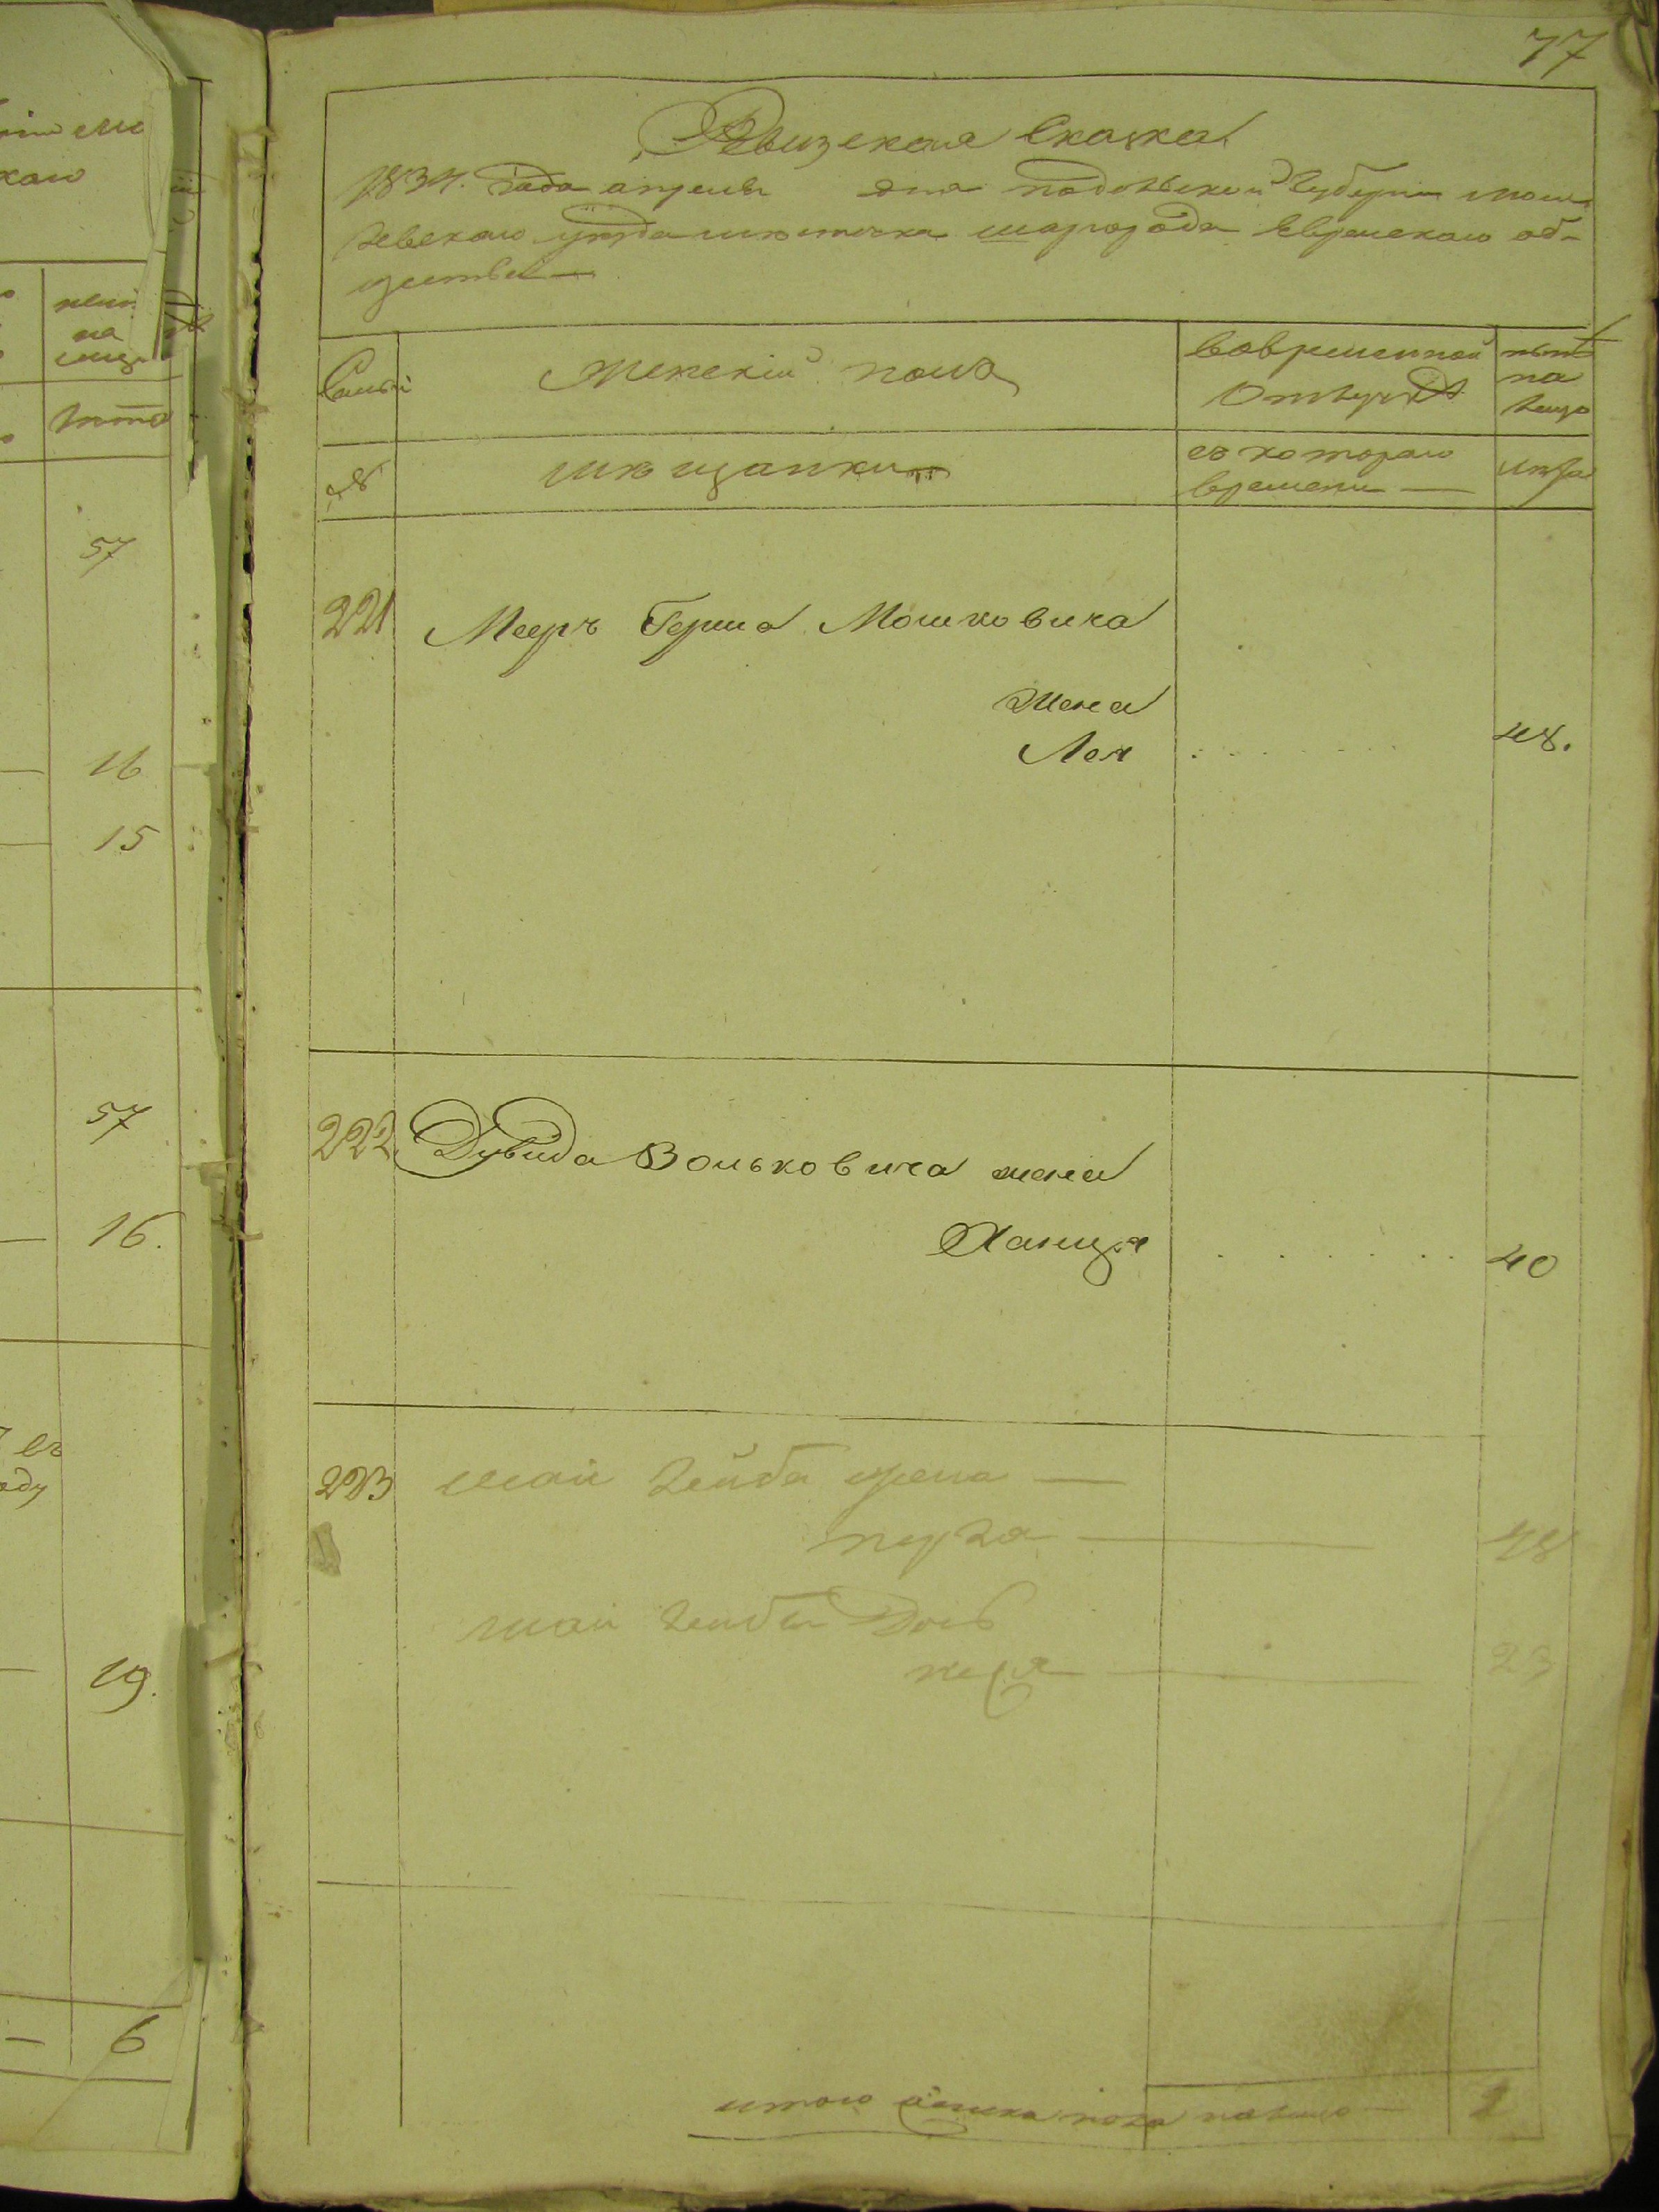 77
Ревизская Сказка
1834. года апреля дня подольской Губернии моги
левского уезда местечка шаргорода Еврейского об-
щества —
Семьи
женский пола
вовременной
Отлучке
ныне
на
лицо
№
мещанки
съ котораго
времени —
лета
221 Меера Герша Мошковича
жена
Лея 48.
222 Дувида Вольковича жена
Ханця 40
223 шаи лейба жена —
48
шаи лейбы дочь
23
итого женска пола налицо — 2
на
лета
57
16
15
57
16.
въ
19.
6